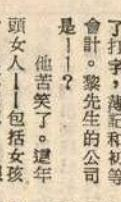 了打字，簿記和初等
會計。黎先生的公司
是——？
他苦笑了。這年
頭女人——包括女孩